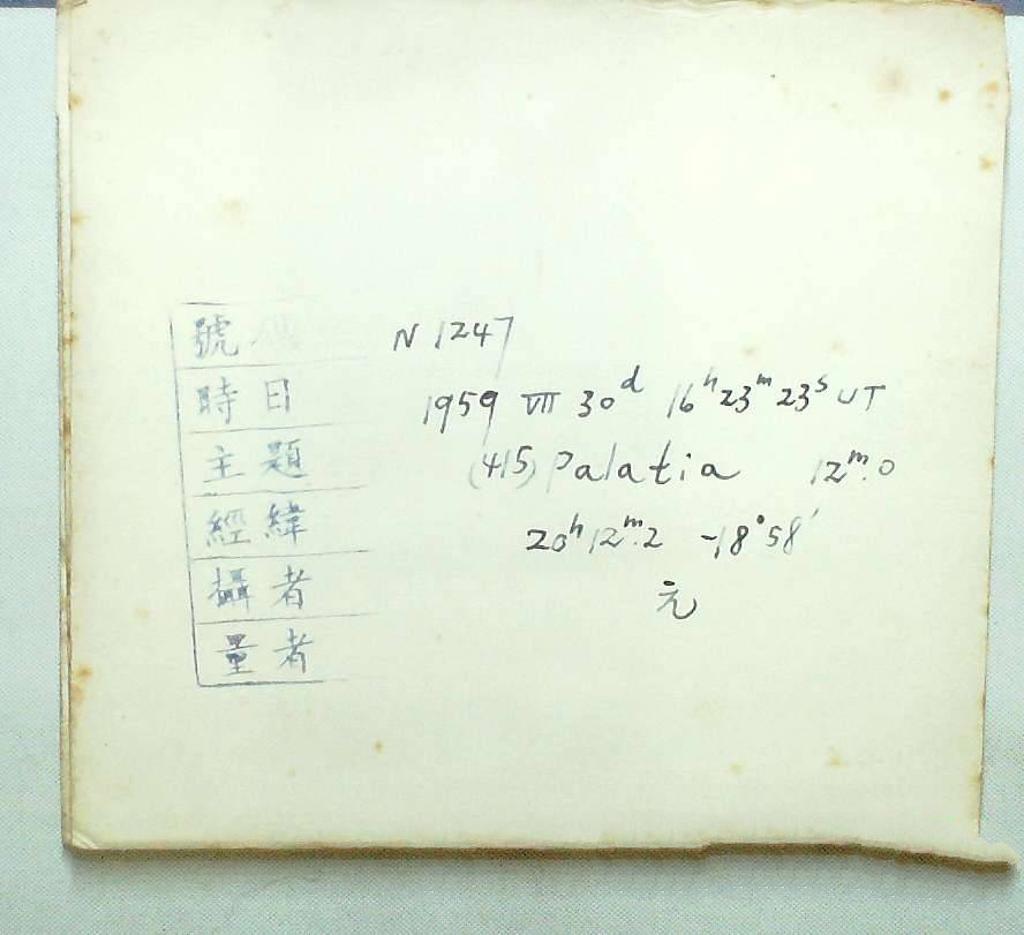 號 N 1247
時日 1959 VII 30ᵈ 16ʰ23ᵐ23ˢ UT
主題 (415) Palatia 12ᵐ.0
經緯 20ʰ12ᵐ.2 -18°58′
攝者 元
量者